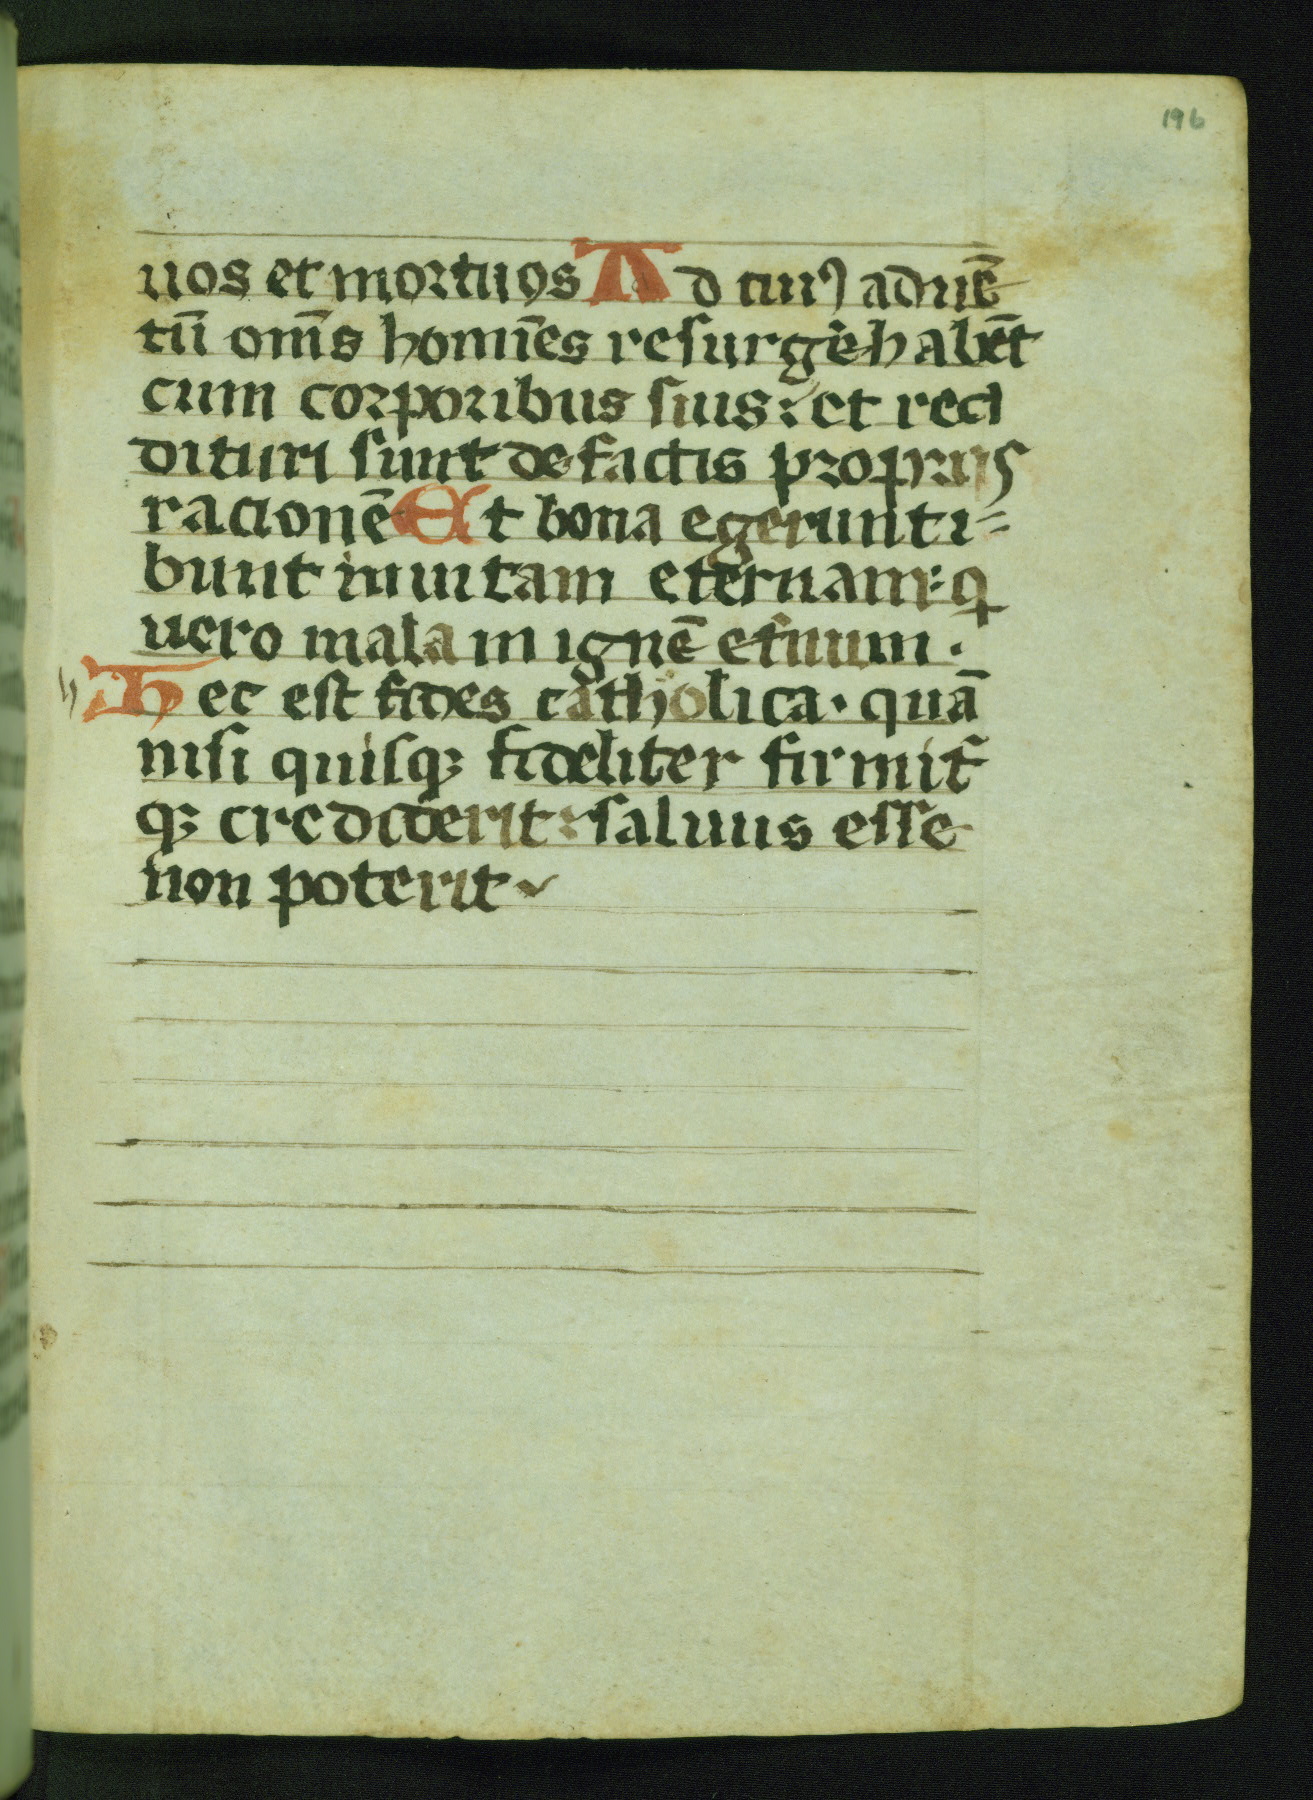 196
uos et mortuos Ad cuiꝰ aduē
tū om̄s homīes resurgē habēt
cum corporibus suis: et red
dituri sunt de factis proprijs
racionē Et bona egerunt i=
bunt in uitam eternam: q
uero mala in ignē et̄num.
h Hec est fides catholica. quā
nisi quisqꝫ fideliter firmit̄
qꝫ crediderit: saluus esse
non poterit